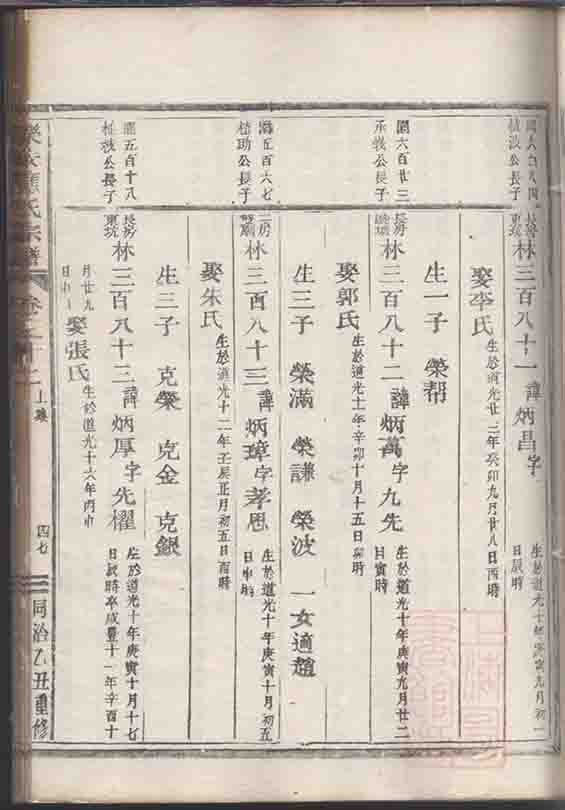 長房
東坑
林三百八十一 諱炳昌字
生於道光十年庚寅九月初一
日辰時
娶李氏 生於道光廿三年癸卯九月廿八日酉時
生一子 榮幇
圜六百廿三
承機公長子
長房
林三百八十二 諱炳萬字九先
生於道光十年庚寅九月廿二
日寅時
娶郭氏 生於道光十一年辛卯十月十五日卯時
生三子 榮滿 榮謙 榮波 一女適趙
五百六七
助公長子
二房
林三百八十三 諱炳璋字孝思
生於道光十年庚寅十月初五
日申時
娶朱氏 生於道光十二年壬辰正月初五日酉時
生三子 克榮 克金 克銀
五百十八
公長子
長房
東坑
林三百八十三 諱炳厚字先櫂
生於道光十年庚寅十月十七
日辰時卒咸豐十一年辛酉十
月廿九
日
娶張氏 生於道光十六年丙申
氏宗譜 卷
四七
同治乙丑重修